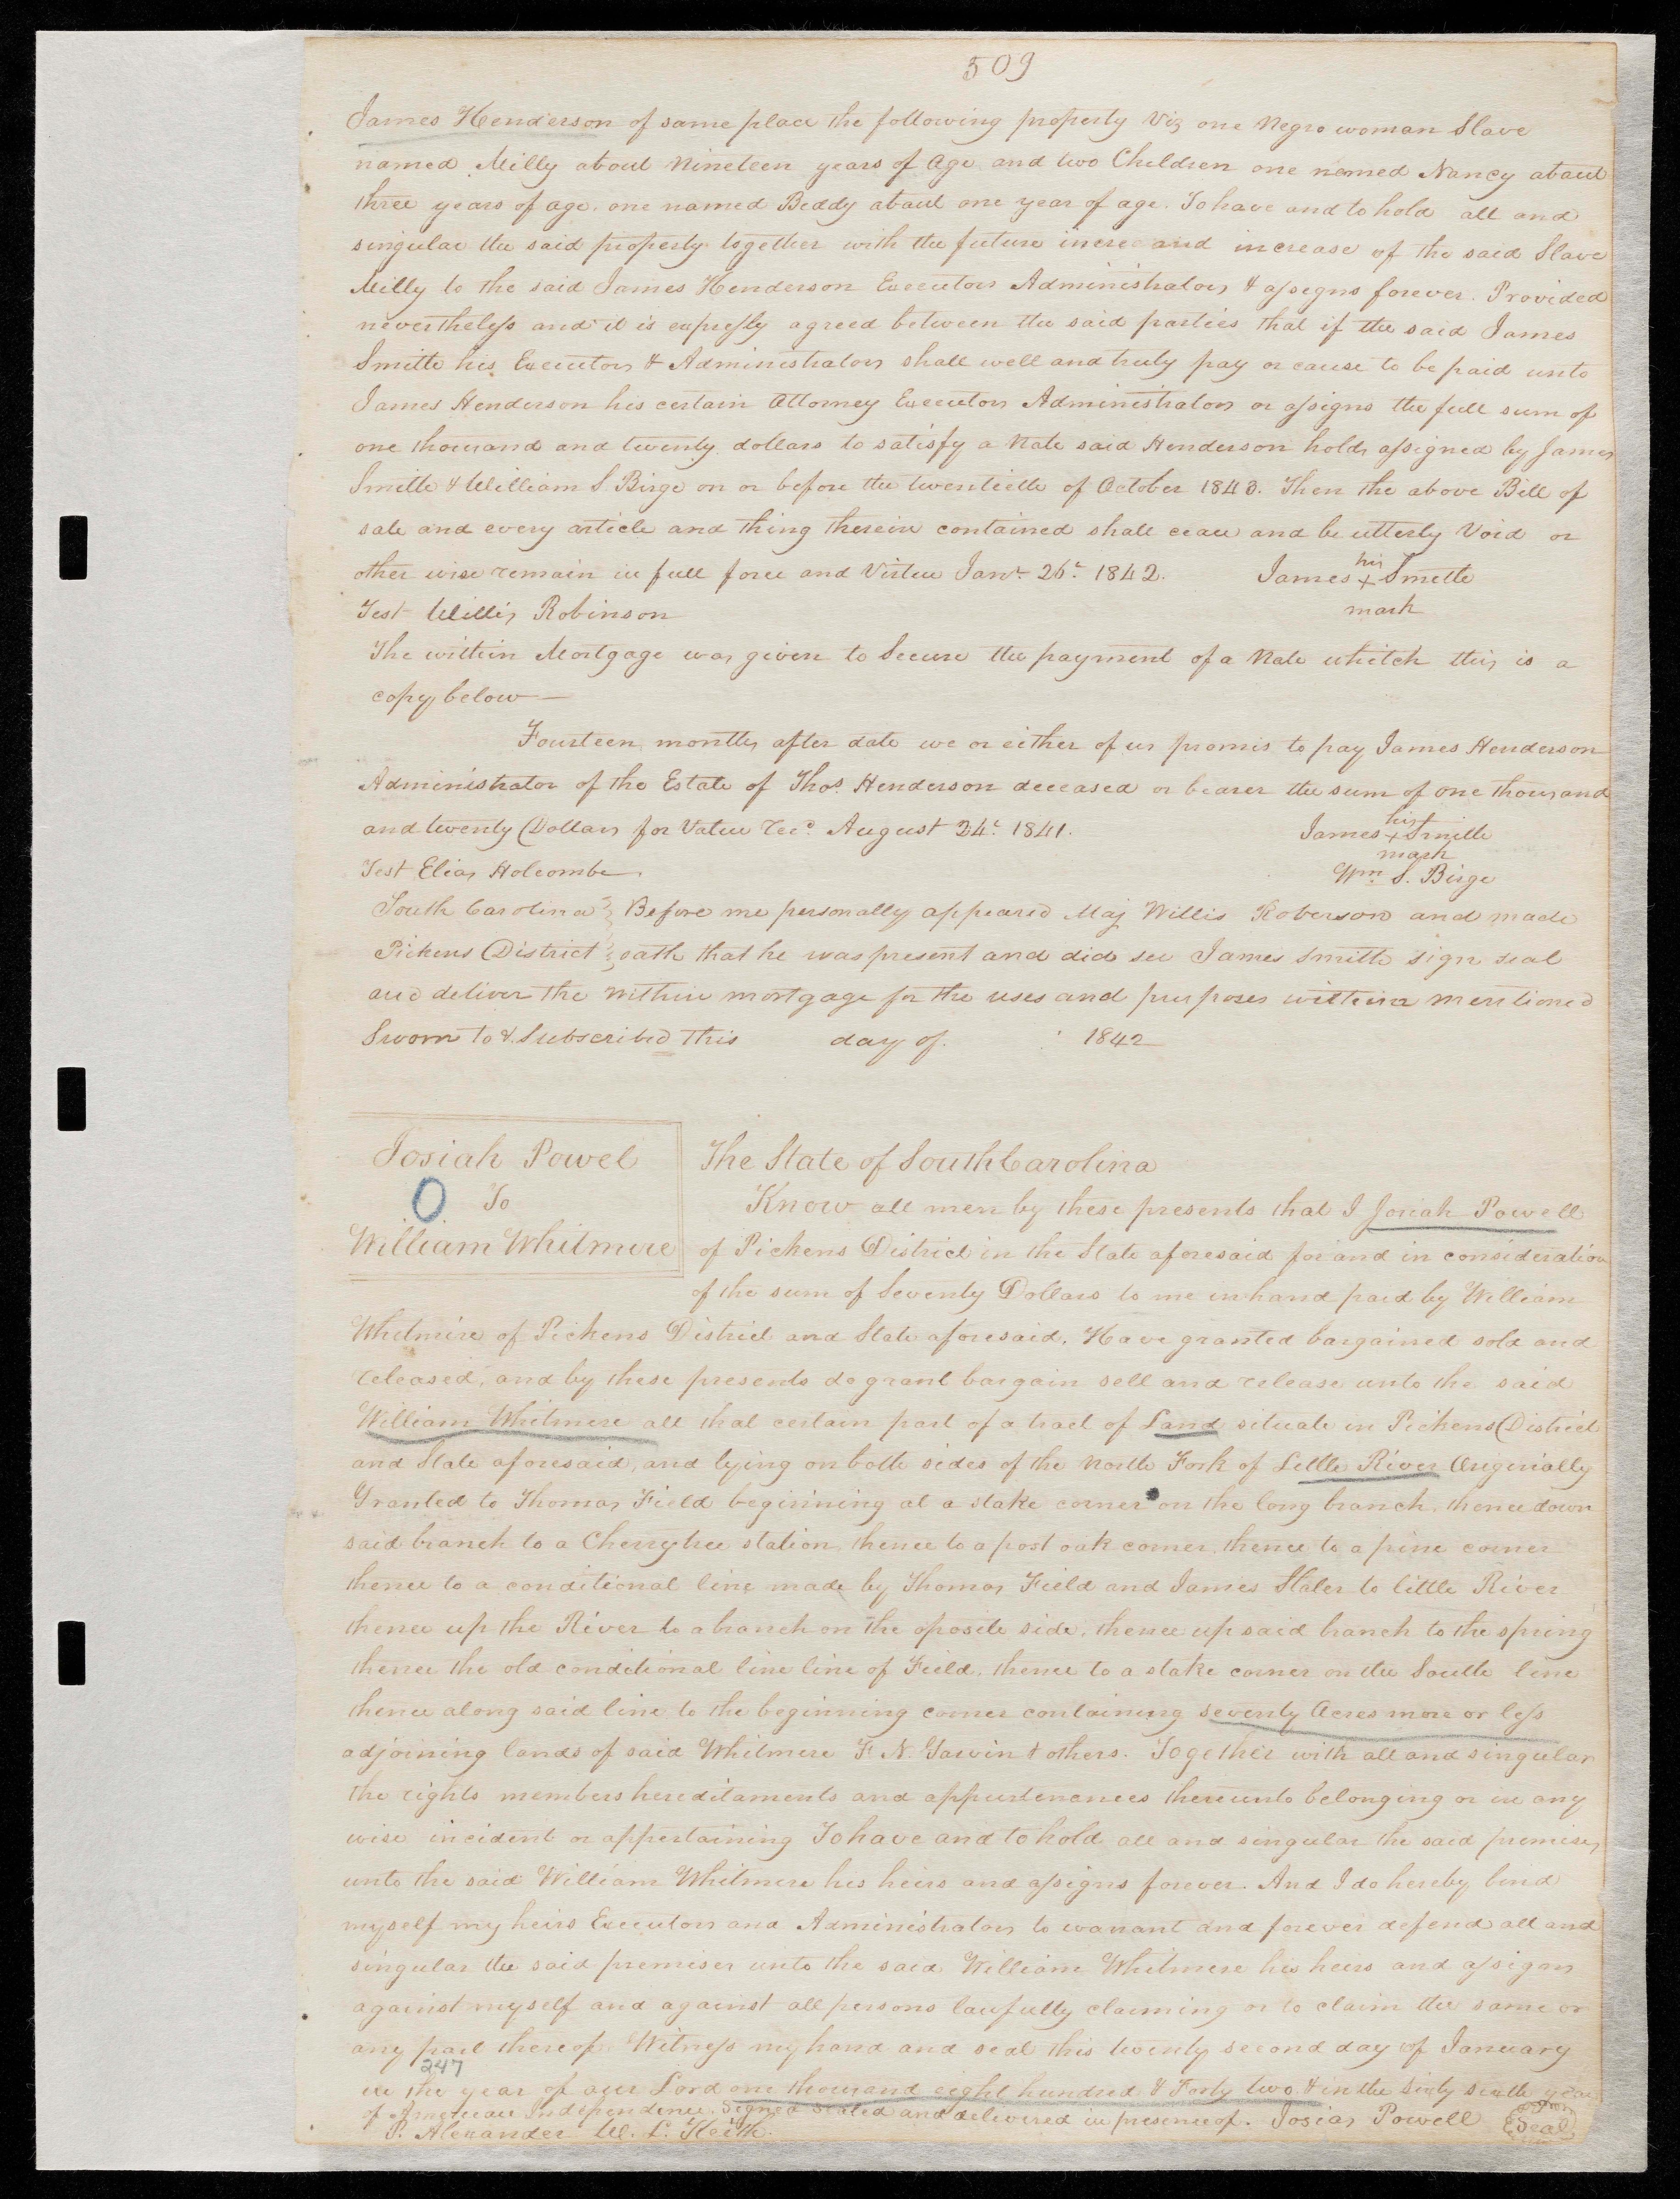 509
James Henderson of same place the following property Viz one Negro woman Slave
named Milly about Nineteen years of Age and two Children one named Nancy about
three years of age. one named Beddy about one year of age. To have and to hold all and
singular the said property together with the future increa and increase of the said Slave
Milly to the said James Henderson Executors Administrators & assigns forever. Provided
nevertheless and it is expressly agreed between the said parties that if the said James
Smith his Executors & Administrators shall well and truly pay or cause to be paid unto
James Henderson his certain Attorney Executors Administrators or assigns the full sum of
one thousand and twenty dollars to satisfy a Note said Henderson holds assigned by James
Smith & William S. Birge on or before the twentieth of October 1843. Then the above Bill of
sale and every article and thing therein contained shall cease and be utterly Void or
other wise remain in full force and Virtue Jany. 26t. 1842. James his + mark Smith
Test Willis Robinson
The within Mortgage was given to Secure the payment of a Note whitch this is a
copy below —
Fourteen months after date we or either of us promis to pay James Henderson
Administrator of the Estate of Thos. Henderson deceased or bearer the sum of one thousand
and twenty Dollars for Value Recd. August 24t. 1841. James his + mark Smith
Test Elias Holcombe Wm S. Birge
South Carolina } Before me personally appeared Maj Willis Roberson and made
Pickens District } oath that he was present and did see James Smith sign seal
and deliver the within mortgage for the uses and purposes within mentioned
Sworn to & Subscribed this day of 1842
Josiah Powel
To
William Whitmire
The State of South Carolina
Know all men by these presents that I Josiah Powell
of Pickens District in the State aforesaid for and in consideration
of the sum of Seventy Dollars to me in hand paid by William
Whitmire of Pickens District and State aforesaid. Have granted bargained sold and
released, and by these presents do grant bargain sell and release unto the said
William Whitmire all that certain part of a tract of Land situate in Pickens District
and State aforesaid, and lying on both sides of the North Fork of Little River Origenially
Granted to Thomas Field beginning at a stake corner on the long branch, thence down
said branch to a Cherrytree station, thence to a post oak corner, thence to a pine corner
thence to a conditional line made by Thomas Field and James Slater to little River
thence up the River to a branch on the oposite side, thence up said branch to the spring
thence the old conditional line line of Field, thence to a stake corner on the South line
thence along said line to the beginning corner containing seventy Acres more or less
adjoining lands of said Whitmire F. N. Garvin & others. Together with all and singular
the rights members hereditaments and appurtenances thereunto belonging or in any
wise incident or appertaining To have and to hold all and singular the said premises
unto the said William Whitmire his heirs and assigns forever. And I do hereby bind
myself my heirs Executors and Administrators to warrant and forever defend all and
singular the said premises unto the said William Whitmire his heirs and assigns
against myself and against all persons lawfully claiming or to claim the same or
any part thereof. Witness my hand and seal this twenty second day of January
247
in the year of our Lord one thousand eight hundred & Forty two & in the sixty sixth year
of American Independence. Signed Sealed and delivered in presence of. Josias Powell Seal
P. Alexander W. L. Keith.